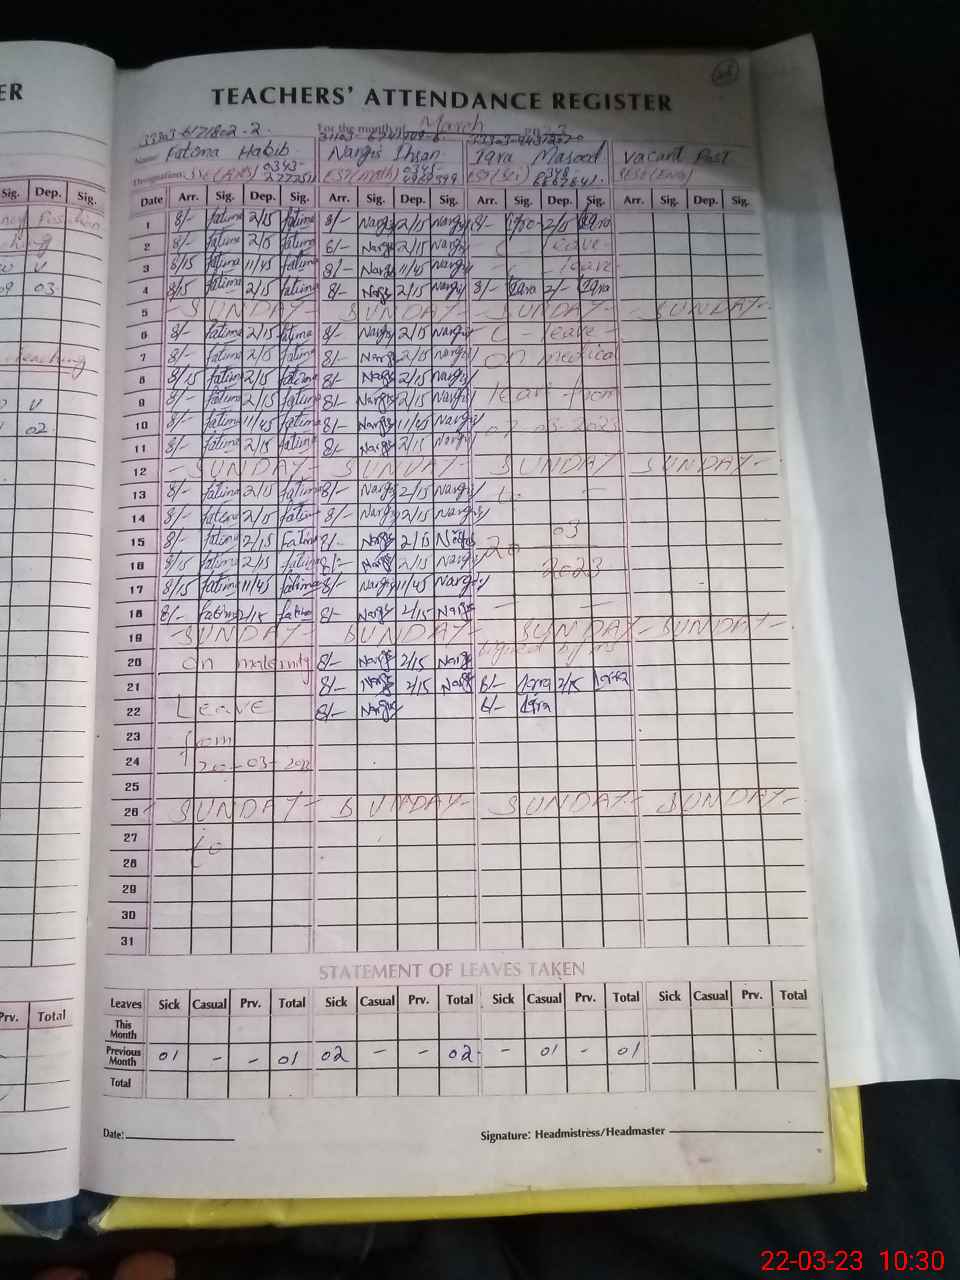 TEACHERS' ATTENDANCE REGISTER
For the month of March
Name: Fatima Habib Nargis Ihsan Iqra Masood Vacant Post
Designation: EST(Math) EST(Sci) SESE(Eng)
Date Arr. Sig. Dep. Sig. Arr. Sig. Dep. Sig. Arr. Sig. Dep. Sig. Arr. Sig. Dep. Sig.
1 8/- fatima 2/15 fatima 8/- Nargis 2/15 Nargis 8/- Iqra 2/15 Iqra
2 8/- fatima 2/15 fatima 8/- Nargis 2/15 Nargis C - leave -
3 8/15 fatima 11/45 fatima 8/- Nargis 11/45 Nargis - leave -
4 8/15 fatima 2/15 fatima 8/- Nargis 2/15 Nargis 8/- Iqra 2/- Iqra
5 - SUNDAY - SUNDAY - SUNDAY - SUNDAY -
6 8/- fatima 2/15 fatima 8/- Nargis 2/15 Nargis C - leave -
7 8/- fatima 2/15 fatima 8/- Nargis 2/15 Nargis On medical
8 8/15 fatima 2/15 fatima 8/- Nargis 2/15 Nargis
9 8/- fatima 2/15 fatima 8/- Nargis 2/15 Nargis leave from
10 8/- fatima 11/45 fatima 8/- Nargis 11/45 Nargis 07-03-2023
11 8/- fatima 2/15 fatima 8/- Nargis 2/15 Nargis
12 - SUNDAY - SUNDAY - SUNDAY SUNDAY -
13 8/- fatima 2/15 fatima 8/- Nargis 2/15 Nargis
14 8/- fatima 2/15 fatima 8/- Nargis 2/15 Nargis
15 8/- fatima 2/15 fatima 8/- Nargis 2/15 Nargis 20 - 03
16 8/15 fatima 2/15 fatima 8/- Nargis 2/15 Nargis 2023
17 8/15 fatima 11/45 fatima 8/- Nargis 11/45 Nargis
18 8/- fatima 2/15 fatima 8/- Nargis 2/15 Nargis
19 - SUNDAY - SUNDAY - SUNDAY - SUNDAY -
20 On maternity 8/- Nargis 2/15 Nargis
21 8/- Nargis 2/15 Nargis 8/- Iqra 2/15 Iqra
22 Leave 8/- Nargis 8/- Iqra
23 from
24 20-03-2023
25
26 SUNDAY - SUNDAY - SUNDAY - SUNDAY -
27
28 to
29
30
31
STATEMENT OF LEAVES TAKEN
Leaves Sick Casual Prv. Total Sick Casual Prv. Total Sick Casual Prv. Total Sick Casual Prv. Total
This Month
Previous Month 01 - - 01 02 - - 02 - 01 - 01
Total
Date:
Signature: Headmistress/Headmaster
22-03-23 10:30